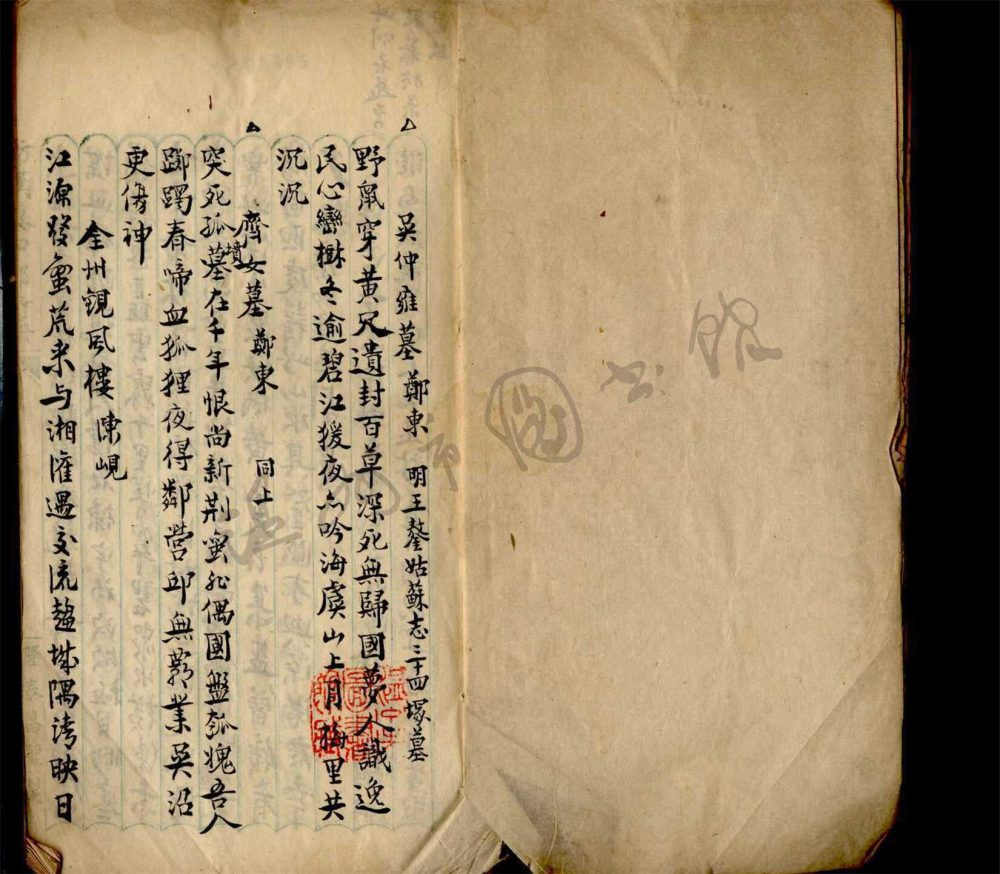 吳仲雍墓 鄭東 明王鏊姑蘇志三十四塚墓
野鼠穿黃尺遺封百草深死無歸國夢人識逸
民心巒樹冬逾碧江猨夜亦吟海虞山上月梅里共
沉沉
齊女墓 鄭東 同上
突死孤墳墓在千年恨尚新荆蠻非偶國盤瓠愧吾人
躑躅春啼血狐狸夜得鄰營邱無霸業吳沼
更傷神
全州觀風樓 陳峴
江源發蠻荒来与湘灌遇交流趨城隅清映日
圖書館